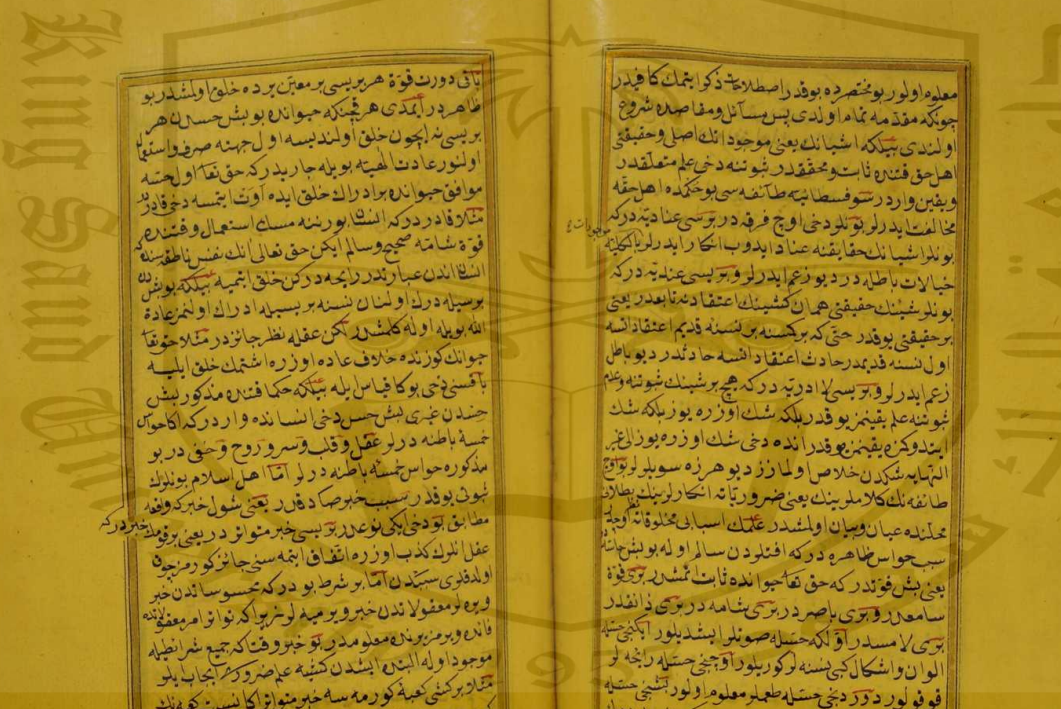 معلوم اولور بو مختصرده بوقدر اصطلاحات ذكر ايتمك كافيدر
چونكه مقدمه تمام اولدى پس مسائل ومقاصده شروع
اولندى بيلكه اشيانك يعنى موجوداتك اصلى وحقيقتى
اهل حق قتنده ثابت ومحققدر ثبوتنه دخى علم متعلقدر
ويقين واردر سوفسطائيه طائفه سى بو حكمده اهل حقه
مخالفت ايدرلر بونلر دخى اوچ فرقه در برسى عناديه دركه
بونلر اشيانك حقايقنه عناد ايدوب انكار ايدرلر بالكليه
خيالات باطله در ديو زعم ايدرلر وبريسى عنديه دركه
بونلر شيئك حقيقتى همان كشينك اعتقادنه تابعدر يعنى
بر حقيقتى يوقدر حتى كه بر كمسنه بر نسنه قديم اعتقاد ايسه
اول نسنه قديمدر حادث اعتقاد ايسه حادثدر ديو باطل
زعم ايدرلر وبريسى لاادريه دركه هيچ بر شيئك ثبوتنه وعدم
ثبوتنه علم يقينمز يوقدر بلكه شك اوزره يوز بلكه شك
ايتدوكمزه يقينمز يوقدر انده دخى شك اوزره يوز الى غير
النهايه شكدن خلاص اولمازز ديو هرزه سويلرلر بو اوچ
طائفه نك كلاملرينك يعنى ضرورياته انكارلرينك بطلانى
محلنده عيان وبيان اولمشدر علمك اسبابى مخلوقاته اوچدر
سبب حواس ظاهره دركه افتلردن سالم اوله بو بش حاسه
يعنى بش قوتدركه حق تعالى حيوانده ثابت ايتمشدر برى قوة
سامعه در وبرى باصره در برى شامه در برى ذائقه در
برى لامسه در اولكى حسله صوتلر ايشديلور ايكنجى حسله
الوان واشكال كبى نسنه لر كوريلور اوچنجى حسله رايحه لر
قوقولور دوردنجى حسله طعملر معلوم اولور بشنجى حسله
باقى دورت قوة هر بريسى بر معين يرده خلق اولمشدر بو
ظاهردر ايمدى هر قچنكه حيوانده بو بش حسدن هر
بريسى نه ايچون خلق اولنديسه اول جهته صرف واستعمال
اولنور عادت الهيه بويله جاريدركه حق تعالى اول حسه
موافق حيوانده بر ادراك خلق ايده اوت ايتمسه دخى قادردر
مثلا قادردركه انسان بورننه مسك استعمال وقتنده
قوة شامه صحيح وسالم ايكن حق تعالى انك نفس ناطقه سنده كه
انسان اندن عبارتدر رايحه دركن خلق ايتميه بيلكه بو بش
برسيله درك اولنان نسنه بريسيله ادراك اولنمز عادة
الله بويله اوله كلمشدر لكن عقله نظر جائزدر مثلا حق تعالى
حيوانك كوزنده خلاف عاده اوزره اشتمك خلق ايليه
باقيسنى دخى بوكا قياس ايله بيلكه حكما قتنده مذكور بش
حسدن غيرى بش حس دخى انسانده واردركه اكا حواس
خمسه باطنه درلر عقل وقلب وسر وروح وخفى در بو
مذكوره حواس خمسه باطنه درلر اما اهل اسلام بونلرك
ثبوتى يوقدر سبب خبر صادقدر يعنى شول خبركه واقعه
مطابق بو دخى ايكى نوعدر بريسى خبر متواتردر يعنى بر قوم
خبر دركه
عقل انلرك كذب اوزره اتفاق ايتمه سنى جائز كورمز چوق
اولدقلرى سببدن اما بر شرط بودركه محسوساتدن خبر
ويره لر معقولاتدن خبر ويرميه لر زيراكه تواتر امر معقولاتده
فائده ويرمز يرنده معلومدر بو خبر وقتاكه جميع شرائطيله
موجود اوله البته ايشدن كشيه علم ضرورى ايجاب ايلر